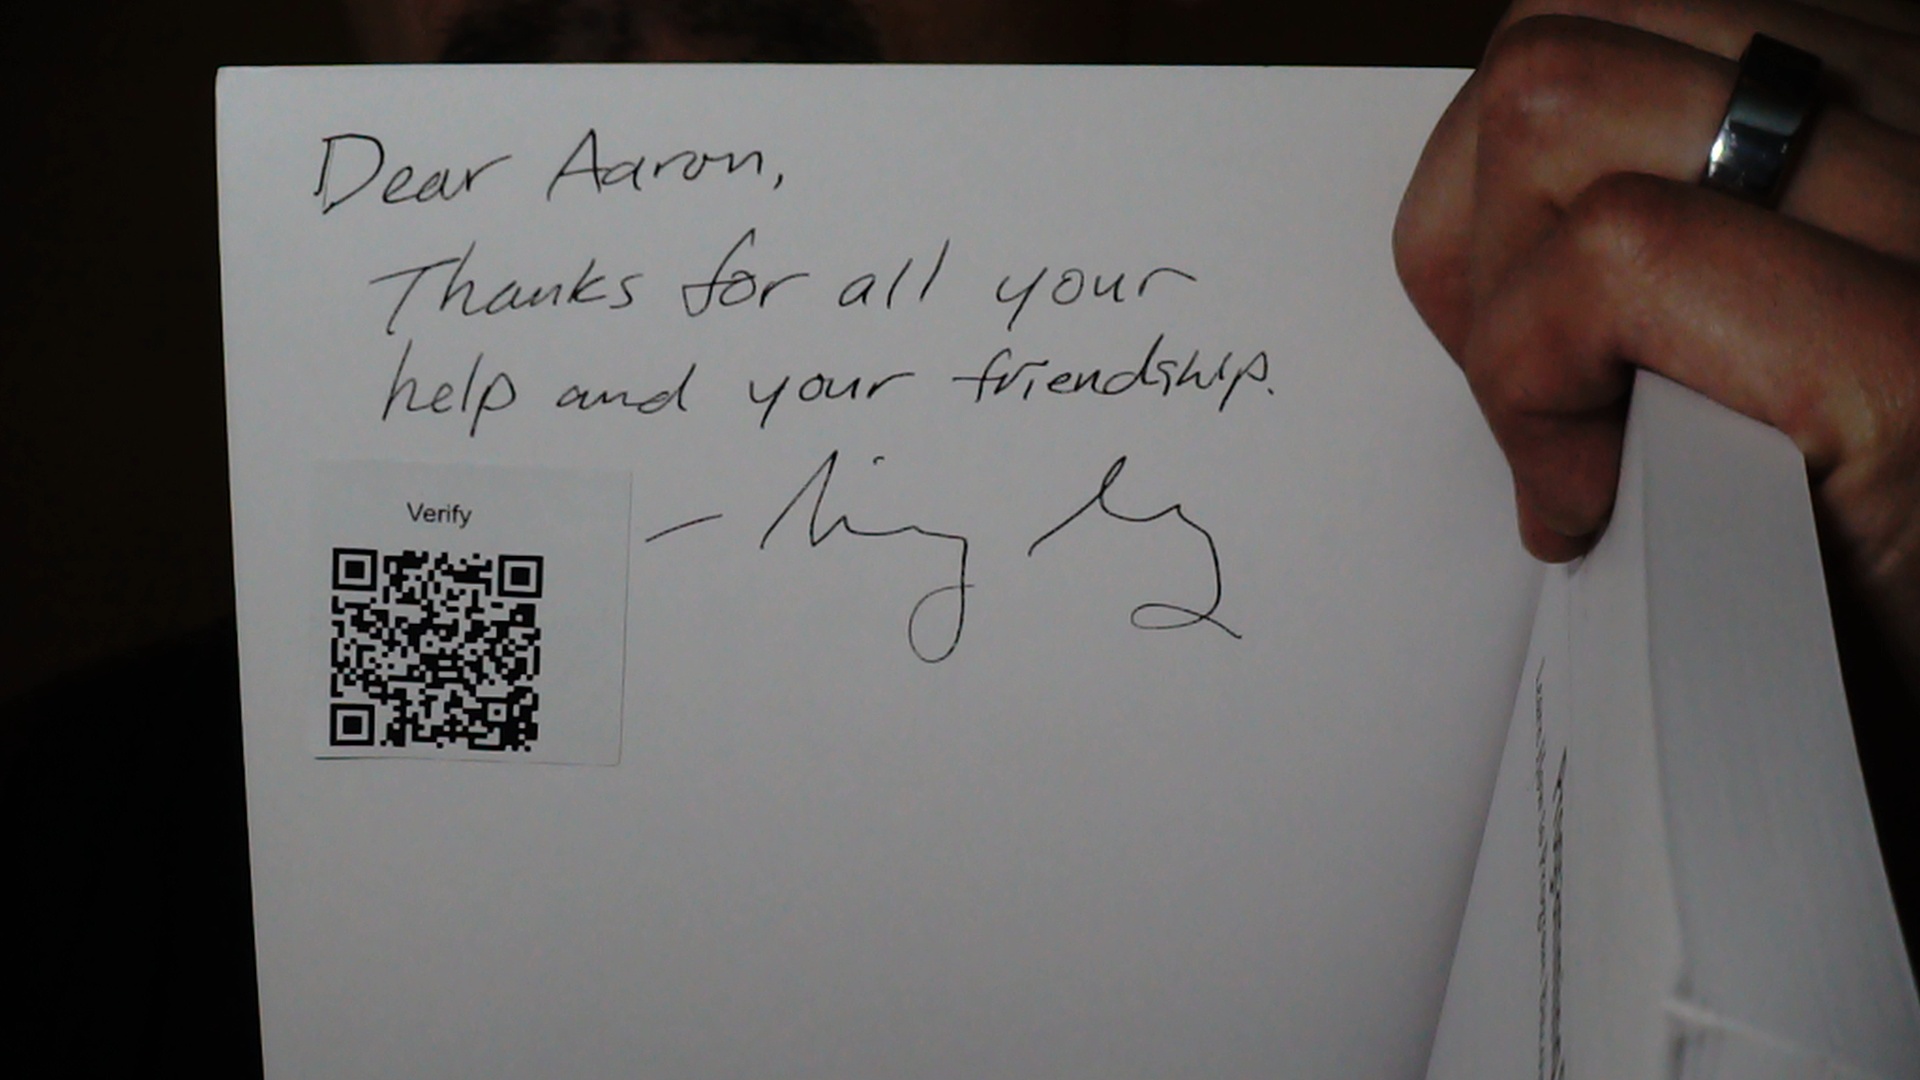 Dear Aaron,
Thanks for all your
help and your friendship.
Verify